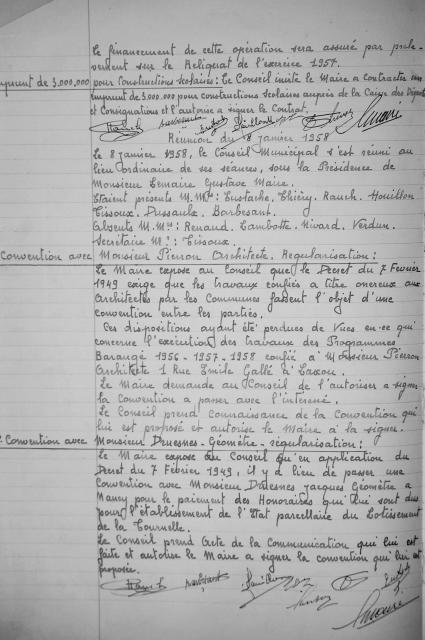 Le financement de cette opération sera assuré par prélè-
vement sur le Reliquat de l'exercice 1957.
emprunt de 3.000.000 pour constructions scolaires: Le Conseil invite le Maire à contracter un
emprunt de 3.000.000 pour constructions scolaires auprès de la Caisse des Dépôts
et Consignations et l'autorise à signer le Contrat.
Réunion du 8 janvier 1958
Le 8 janvier 1958, le Conseil Municipal s'est réuni au
lieu ordinaire de ses séances, sous la Présidence de
Monsieur Lemaire Gustave Maire.
Etaient présents M.Mrs: Eustache, Thiéry, Rauch, Houillon
Tissoux, Dussaulx, Barbesant.
Absents M.Mrs: Renaud, Lambotte, Nivard, Verdun.
Secrétaire Mr: Tissoux.
Convention avec Monsieur Pierron Architecte. Régularisation:
Le Maire expose au Conseil que le Décret du 7 Février
1949 exige que les travaux confiés à titre onéreux aux
Architectes par les Communes fassent l'objet d'une
convention entre les parties.
Ces dispositions ayant été perdues de vues en ce qui
concerne l'exécution des travaux des Programmes
Barangé 1956-1957-1958 confié à Monsieur Pierron
Architecte 1 Rue Emile Gallé à Laxou.
Le Maire demande au Conseil de l'autoriser à signer
la Convention à passer avec l'intéressé.
Le Conseil prend connaissance de la Convention qui
lui est proposé et autorise le Maire à la signer.
Convention avec Monsieur Duesnes-Géomètre-régularisation:
Le Maire expose au Conseil qu'en application du
Décret du 7 Février 1949, il y a lieu de passer une
Convention avec Monsieur Duesnes Jacques Géomètre à
Nancy pour le paiement des Honoraires qui lui sont dus
pour l'établissement de l'Etat parcellaire du Lotissement
de la Tournelle.
Le Conseil prend Acte de la Communication qui lui est
faite et autorise le Maire à signer la convention qui lui est
proposée.